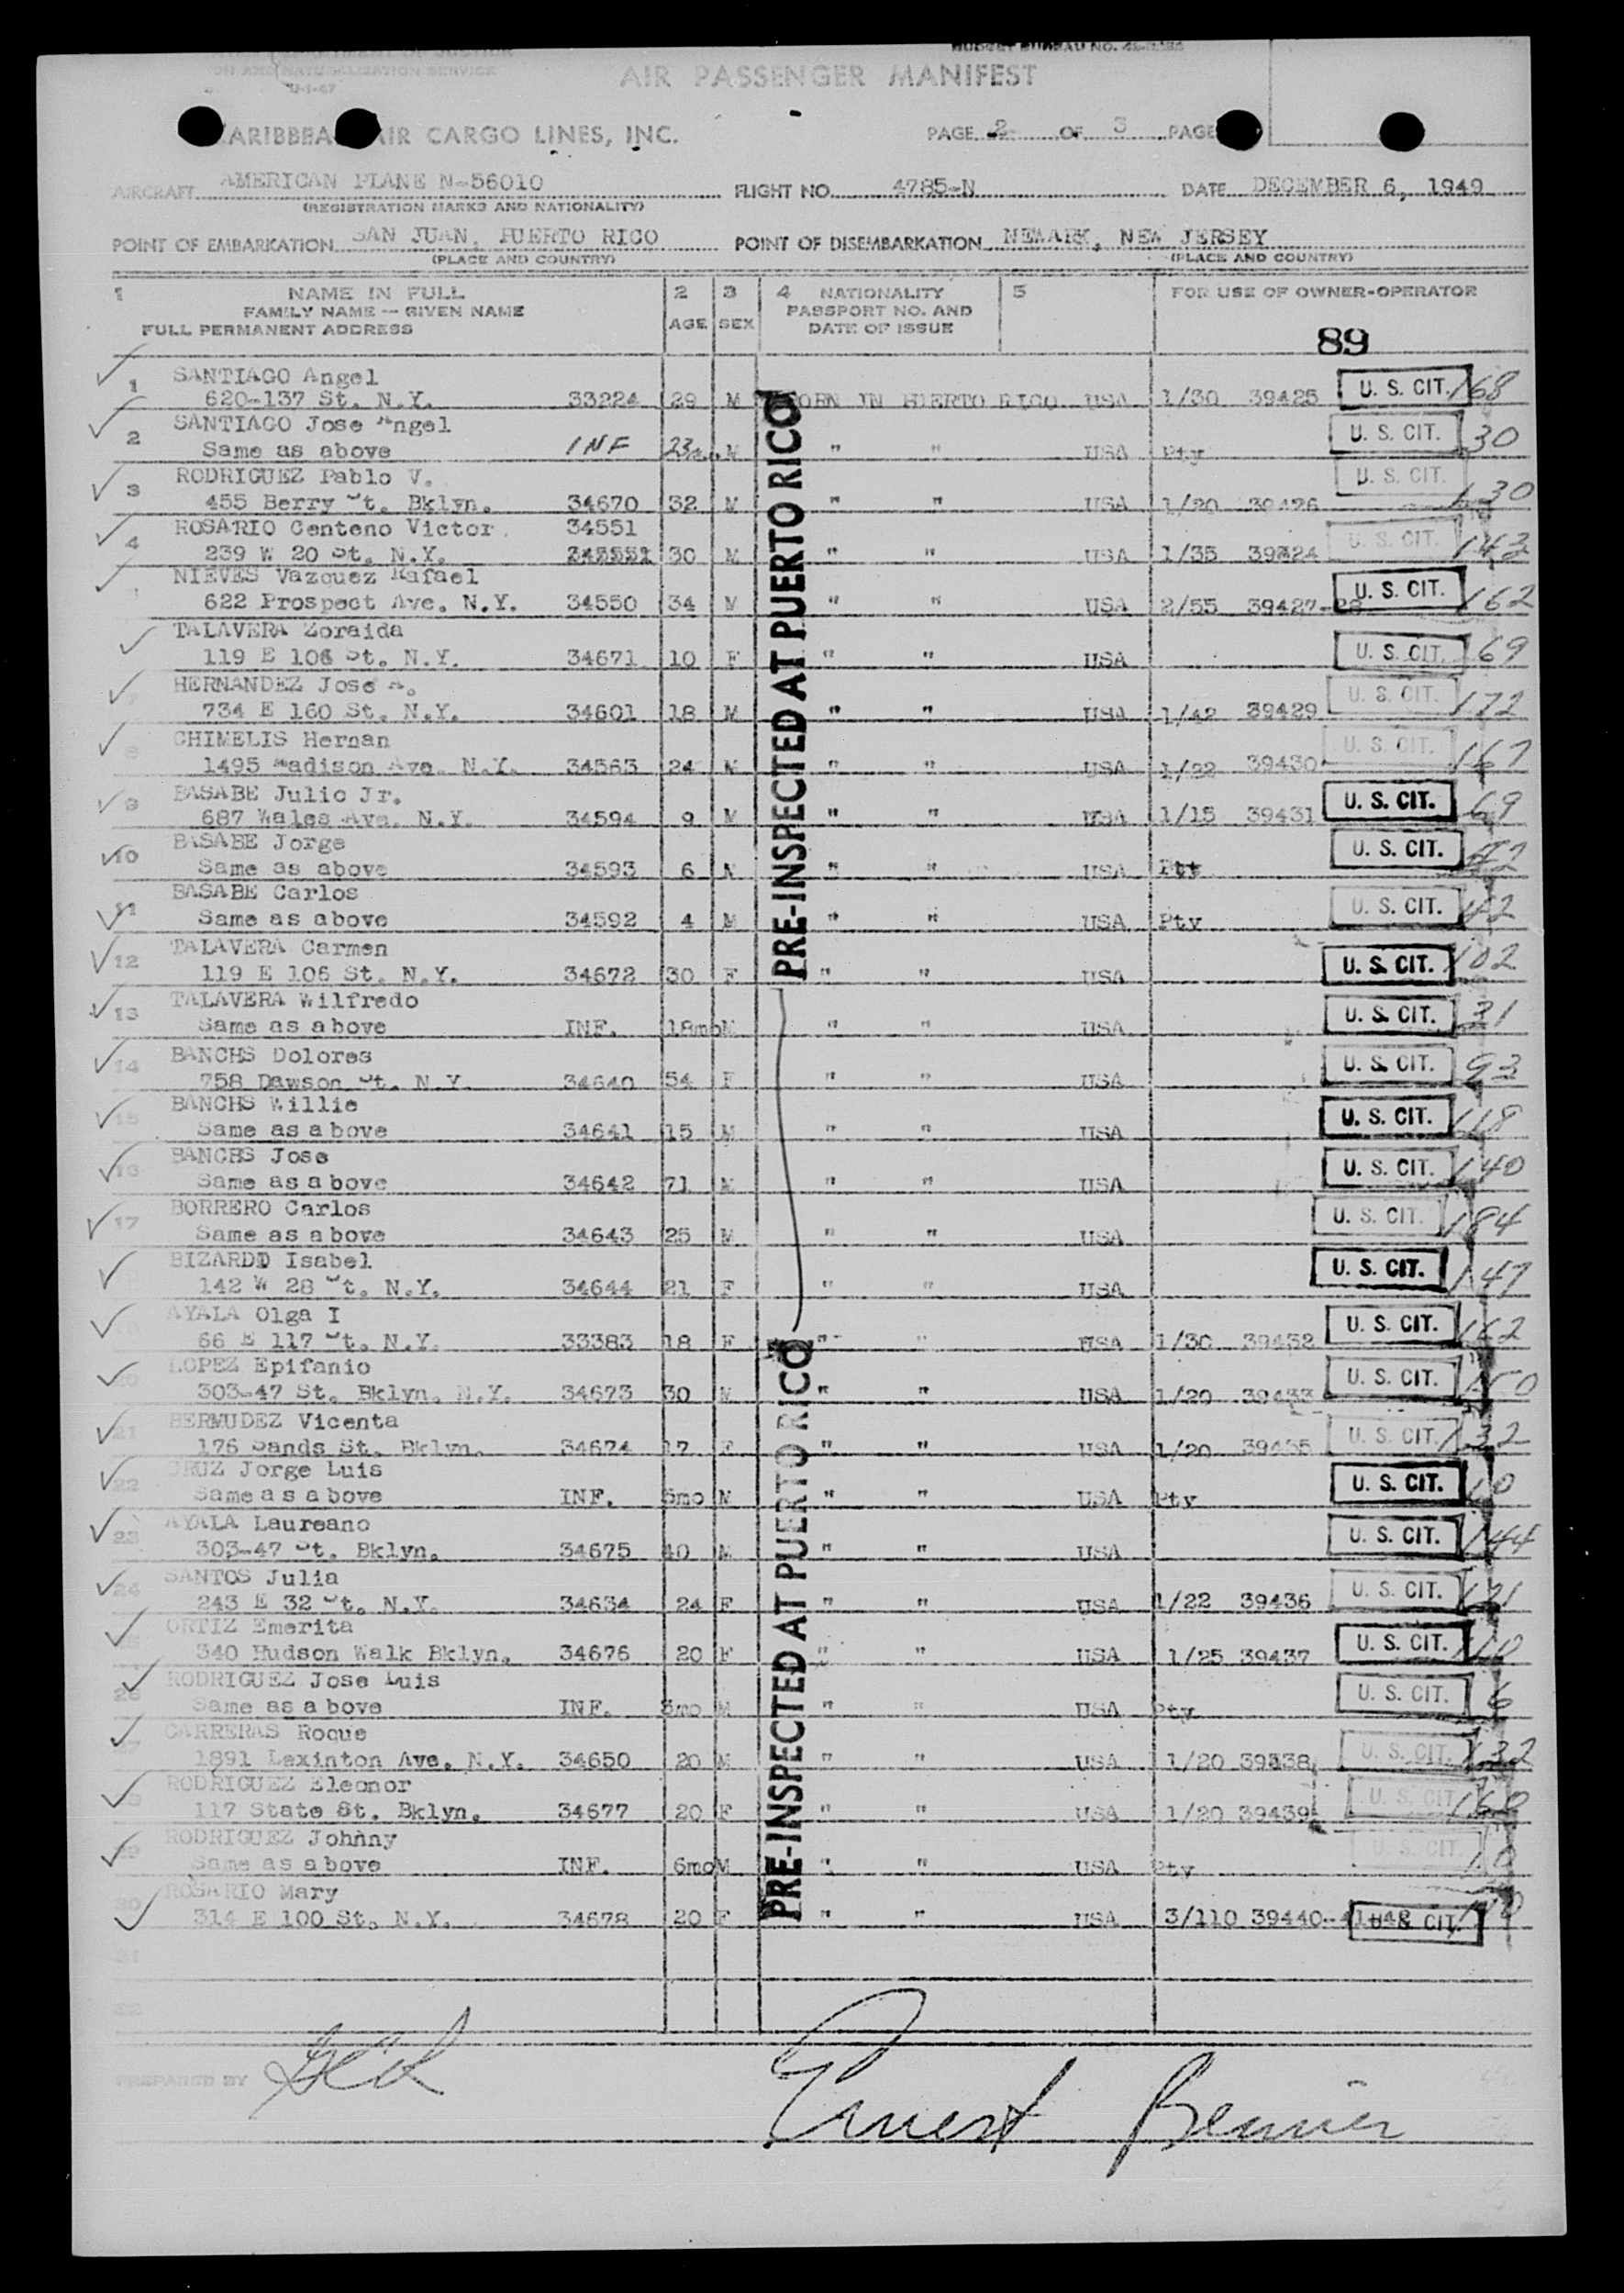 BUDGET BUREAU NO.
ON AND NATURALIZATION SERVICE
AIR PASSENGER MANIFEST
CARIBBEAN AIR CARGO LINES, INC. PAGE 2 OF 3 PAGE
AIRCRAFT AMERICAN PLANE N-56010 FLIGHT NO. 4785-N DATE DECEMBER 6, 1949
(REGISTRATION MARKS AND NATIONALITY)
POINT OF EMBARKATION SAN JUAN, PUERTO RICO POINT OF DISEMBARKATION NEWARK, NEW JERSEY
(PLACE AND COUNTRY) (PLACE AND COUNTRY)
1 NAME IN FULL 2 3 4 NATIONALITY 5 FOR USE OF OWNER-OPERATOR
FAMILY NAME — GIVEN NAME PASSPORT NO. AND
FULL PERMANENT ADDRESS AGE SEX DATE OF ISSUE
89
PRE-INSPECTED AT PUERTO RICO
1 SANTIAGO Angel
620-137 St. N.Y. 33224 29 M BORN IN PUERTO RICO USA 1/30 39425 U. S. CIT. 168
2 SANTIAGO Jose Angel
Same as above INF M " " USA Pty U. S. CIT. 30
3 RODRIGUEZ Pablo V.
455 Berry St. Bklyn. 34670 32 M " " USA 1/20 39426 U. S. CIT. 130
4 ROSARIO Centeno Victor 34551
239 W 20 St. N.Y. 30 M " " USA 1/35 U. S. CIT. 142
NIEVES Vazquez Rafael
622 Prospect Ave. N.Y. 34550 34 M " " USA 2/55 39427-28 U. S. CIT. 162
TALAVERA Zoraida
119 E 106 St. N.Y. 34671 10 F " " USA U. S. CIT. 69
HERNANDEZ Jose A.
734 E 160 St. N.Y. 34601 18 M " " USA 1/42 39429 U. S. CIT. 172
8 CHIMELIS Hernan
1495 Madison Ave. N.Y. 34563 24 M " " USA 1/22 39430 U. S. CIT. 167
9 BASABE Julio Jr.
687 Wales Ave. N.Y. 34594 9 M " " USA 1/15 39431 U. S. CIT. 69
10 BASABE Jorge
Same as above 34593 6 M " " USA U. S. CIT. 42
11 BASABE Carlos
Same as above 34592 4 M " " USA Pty U. S. CIT. 42
12 TALAVERA Carmen
119 E 106 St. N.Y. 34672 30 F " " USA U. S. CIT. 102
13 TALAVERA Wilfredo
Same as above INF. 18mo M " " USA U. S. CIT. 31
14 BANCHS Dolores
758 Dawson St. N.Y. 34640 54 F " " USA U. S. CIT. 93
15 BANCHS Willie
Same as above 34641 15 M " " USA U. S. CIT. 118
16 BANCHS Jose
Same as above 34642 71 M " " USA U. S. CIT. 140
17 BORRERO Carlos
Same as above 34643 25 M " " USA U. S. CIT. 184
Isabel
142 W 28 St. N.Y. 34644 21 F " " USA U. S. CIT. 147
AYALA Olga I
66 E 117 St. N.Y. 33383 18 F " " USA 1/30 39432 U. S. CIT. 162
20 LOPEZ Epifanio
303-47 St. Bklyn. N.Y. 34673 30 M " " USA 1/20 39433 U. S. CIT. 150
21 BERMUDEZ Vicenta
176 Sands St. Bklyn. 34674 17 F " " USA 1/20 39435 U. S. CIT. 132
22 CRUZ Jorge Luis
Same as above INF. 5mo M " " USA Pty U. S. CIT. 10
23 AYALA Laureano
303-47 St. Bklyn. 34675 40 M " " USA U. S. CIT. 144
24 SANTOS Julia
243 E 32 St. N.Y. 34634 24 F " " USA 1/22 39436 U. S. CIT. 121
ORTIZ Emerita
340 Hudson Walk Bklyn. 34676 20 F " " USA 1/25 39437 U. S. CIT. 110
26 RODRIGUEZ Jose Luis
Same as above INF. 3mo M " " USA Pty U. S. CIT. 6
CARRERAS Roque
1891 Lexinton Ave. N.Y. 34650 20 M " " USA 1/20 39438 U. S. CIT. 132
RODRIGUEZ Eleonor
117 State St. Bklyn. 34677 20 F " " USA 1/20 39439 U. S. CIT. 160
29 RODRIGUEZ Johnny
Same as above INF. 6mo M " " USA Pty U. S. CIT. 10
30 ROSARIO Mary
314 E 100 St. N.Y. 34678 20 F " " USA 3/110 39440-41-42 U. S. CIT.
PRE-INSPECTED AT PUERTO RICO
31
32
PREPARED BY
Ernest